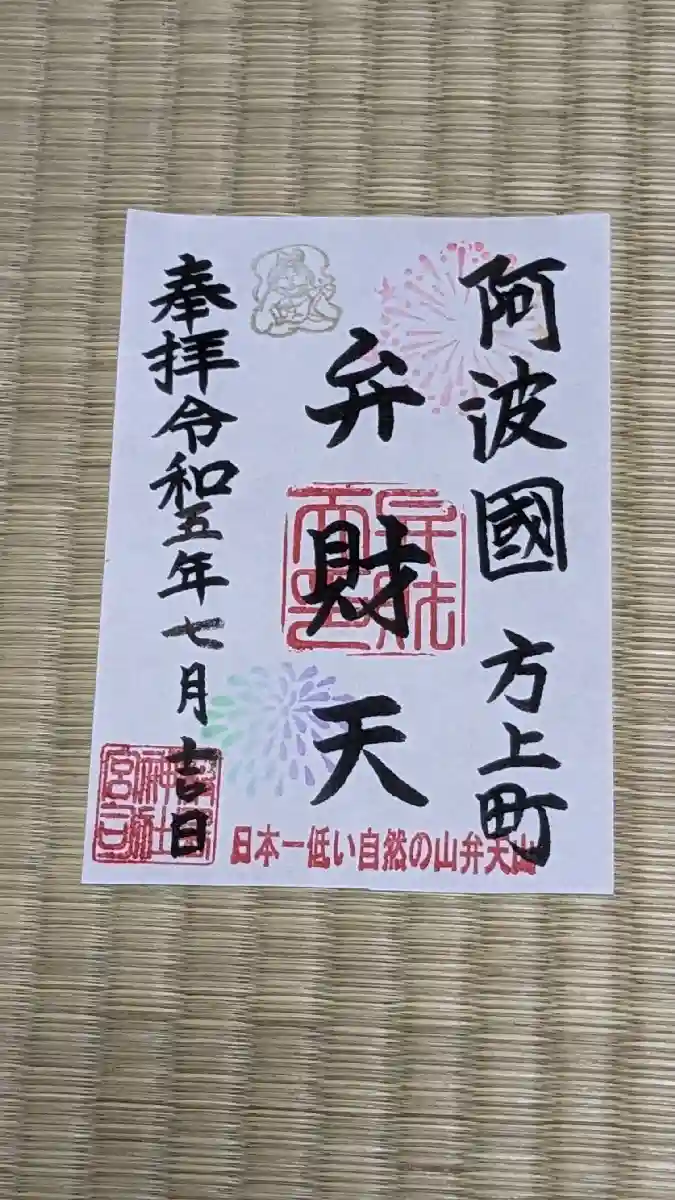 阿波國 方上町
弁財天
奉拝令和五年七月吉日
日本一低い自然の山弁天山